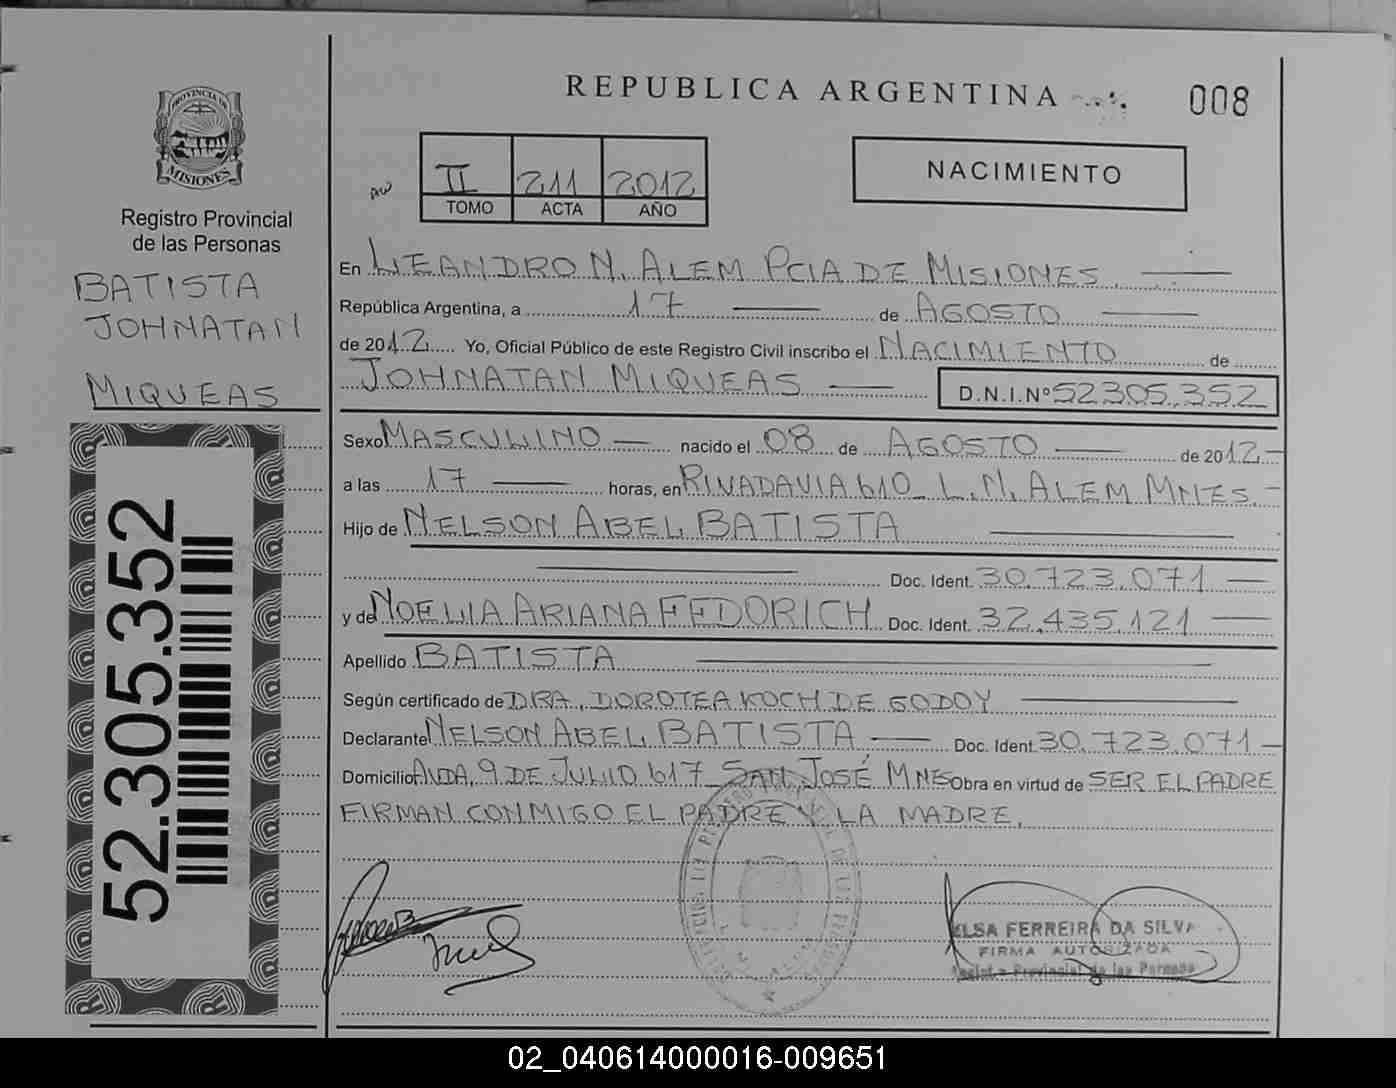 REPUBLICA ARGENTINA
008
PROVINCIA DE
MISIONES
Registro Provincial
de las Personas
BATISTA
JOHNATAN
MIQUEAS
52.305.352
II 211 2012
TOMO ACTA AÑO
NACIMIENTO
En LEANDRO N. ALEM PCIA DE MISIONES
República Argentina, a 17 de AGOSTO
de 2012 Yo, Oficial Público de este Registro Civil inscribo el NACIMIENTO de
JOHNATAN MIQUEAS D.N.I.Nº 52305.352
Sexo MASCULINO nacido el 08 de AGOSTO de 2012.-
a las 17 horas, en RIVADAVIA 610 L.N. ALEM MNES.-
Hijo de NELSON ABEL BATISTA
Doc. Ident. 30.723.071
y de NOELIA ARIANA FEDORICH Doc. Ident. 32.435.121
Apellido BATISTA
Según certificado de DRA. DOROTEA KOCH DE GODOY
Declarante NELSON ABEL BATISTA Doc. Ident. 30.723.071
Domicilio AVDA. 9 DE JULIO 617 SAN JOSÉ MNES Obra en virtud de SER EL PADRE
FIRMAN CONMIGO EL PADRE Y LA MADRE.
ELSA FERREIRA DA SILVA
FIRMA AUTORIZADA
Provincial de las Personas
02_040614000016-009651